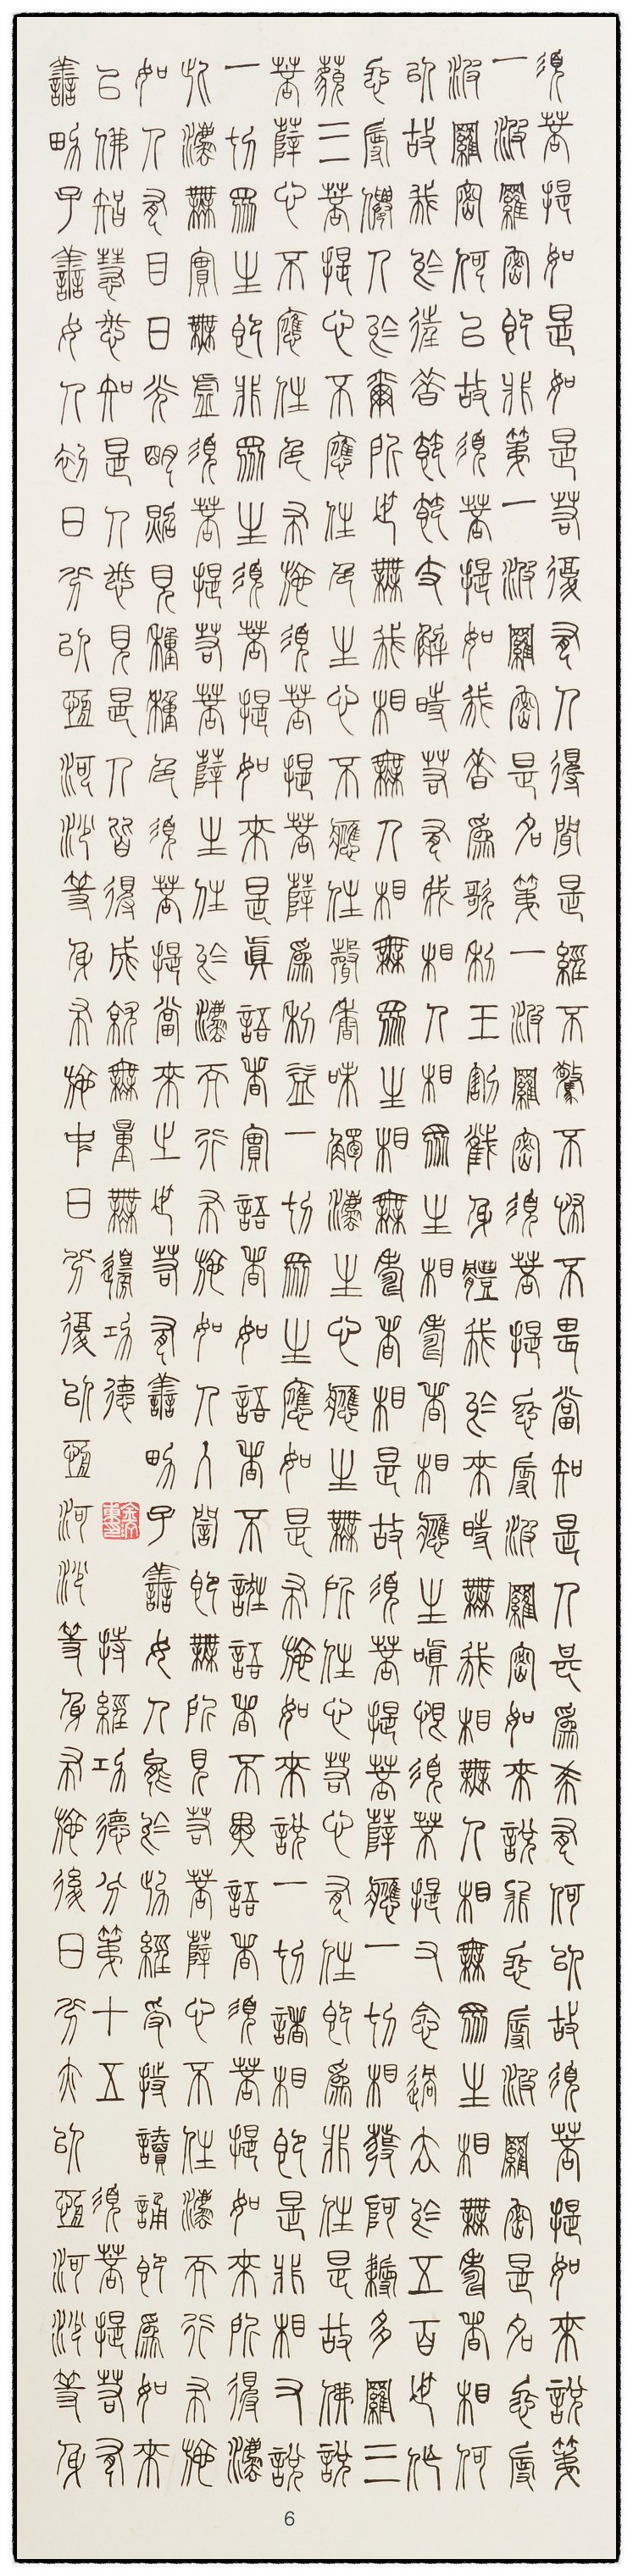 須菩提如是如是若復有人得聞是經不驚不怖不畏當知是人甚為希有何以故須菩提如來說第
一波羅蜜即非第一波羅蜜是名第一波羅蜜須菩提忍辱波羅蜜如來說非忍辱波羅蜜是名忍辱
波羅蜜何以故須菩提如我昔為歌利王割截身體我於爾時無我相無人相無眾生相無壽者相何
以故我於往昔節節支解時若有我相人相眾生相壽者相應生瞋恨須菩提又念過去於五百世作
忍辱仙人於爾所世無我相無人相無眾生相無壽者相是故須菩提菩薩應一切相發阿耨多羅三
藐三菩提心不應住色生心不應住聲香味觸法生心應生無所住心若心有住即為非住是故佛說
菩薩心不應住色布施須菩提菩薩為利益一切眾生應如是布施如來說一切諸相即是非相又說
一切眾生即非眾生須菩提如來是真語者實語者如語者不誑語者不異語者須菩提如來所得法
此法無實無虛須菩提若菩薩生住於法而行布施如人入闇即無所見若菩薩心不住法而行布施
如人有目日光明照見種種色須菩提當來之世若有善男子善女人能於此經受持讀誦即為如來
以佛智慧悉知是人悉見是人皆得成就無量無邊功德 持經功德分第十五 須菩提若有
善男子善女人初日分以恒河沙等身布施中日分復以恒河沙等身布施後日分亦以恒河沙等身
6